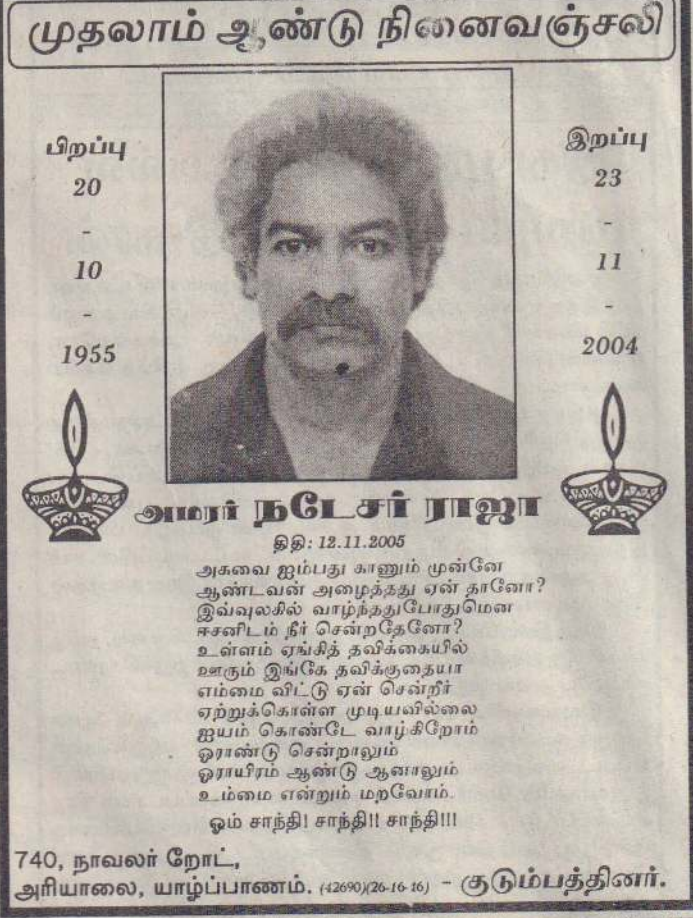 முதலாம் ஆண்டு நினைவஞ்சலி
பிறப்பு
20
-
10
-
1955
இறப்பு
23
-
11
-
2004
அமரர் நடேசர் ராஜா
திதி: 12.11.2005
அகவை ஐம்பது காணும் முன்னே
ஆண்டவன் அழைத்தது ஏன் தானோ?
இவ்வுலகில் வாழ்ந்ததுபோதுமென
ஈசனிடம் நீர் சென்றதேனோ?
உள்ளம் ஏங்கித் தவிக்கையில்
ஊரும் இங்கே தவிக்குதையா
எம்மை விட்டு ஏன் சென்றீர்
ஏற்றுக்கொள்ள முடியவில்லை
ஐயம் கொண்டே வாழ்கிறோம்
ஓராண்டு சென்றாலும்
ஓராயிரம் ஆண்டு ஆனாலும்
உம்மை என்றும் மறவோம்.
ஓம் சாந்தி! சாந்தி!! சாந்தி!!!
740, நாவலர் றோட்,
அரியாலை, யாழ்ப்பாணம். (42690)(26-16-16) - குடும்பத்தினர்.